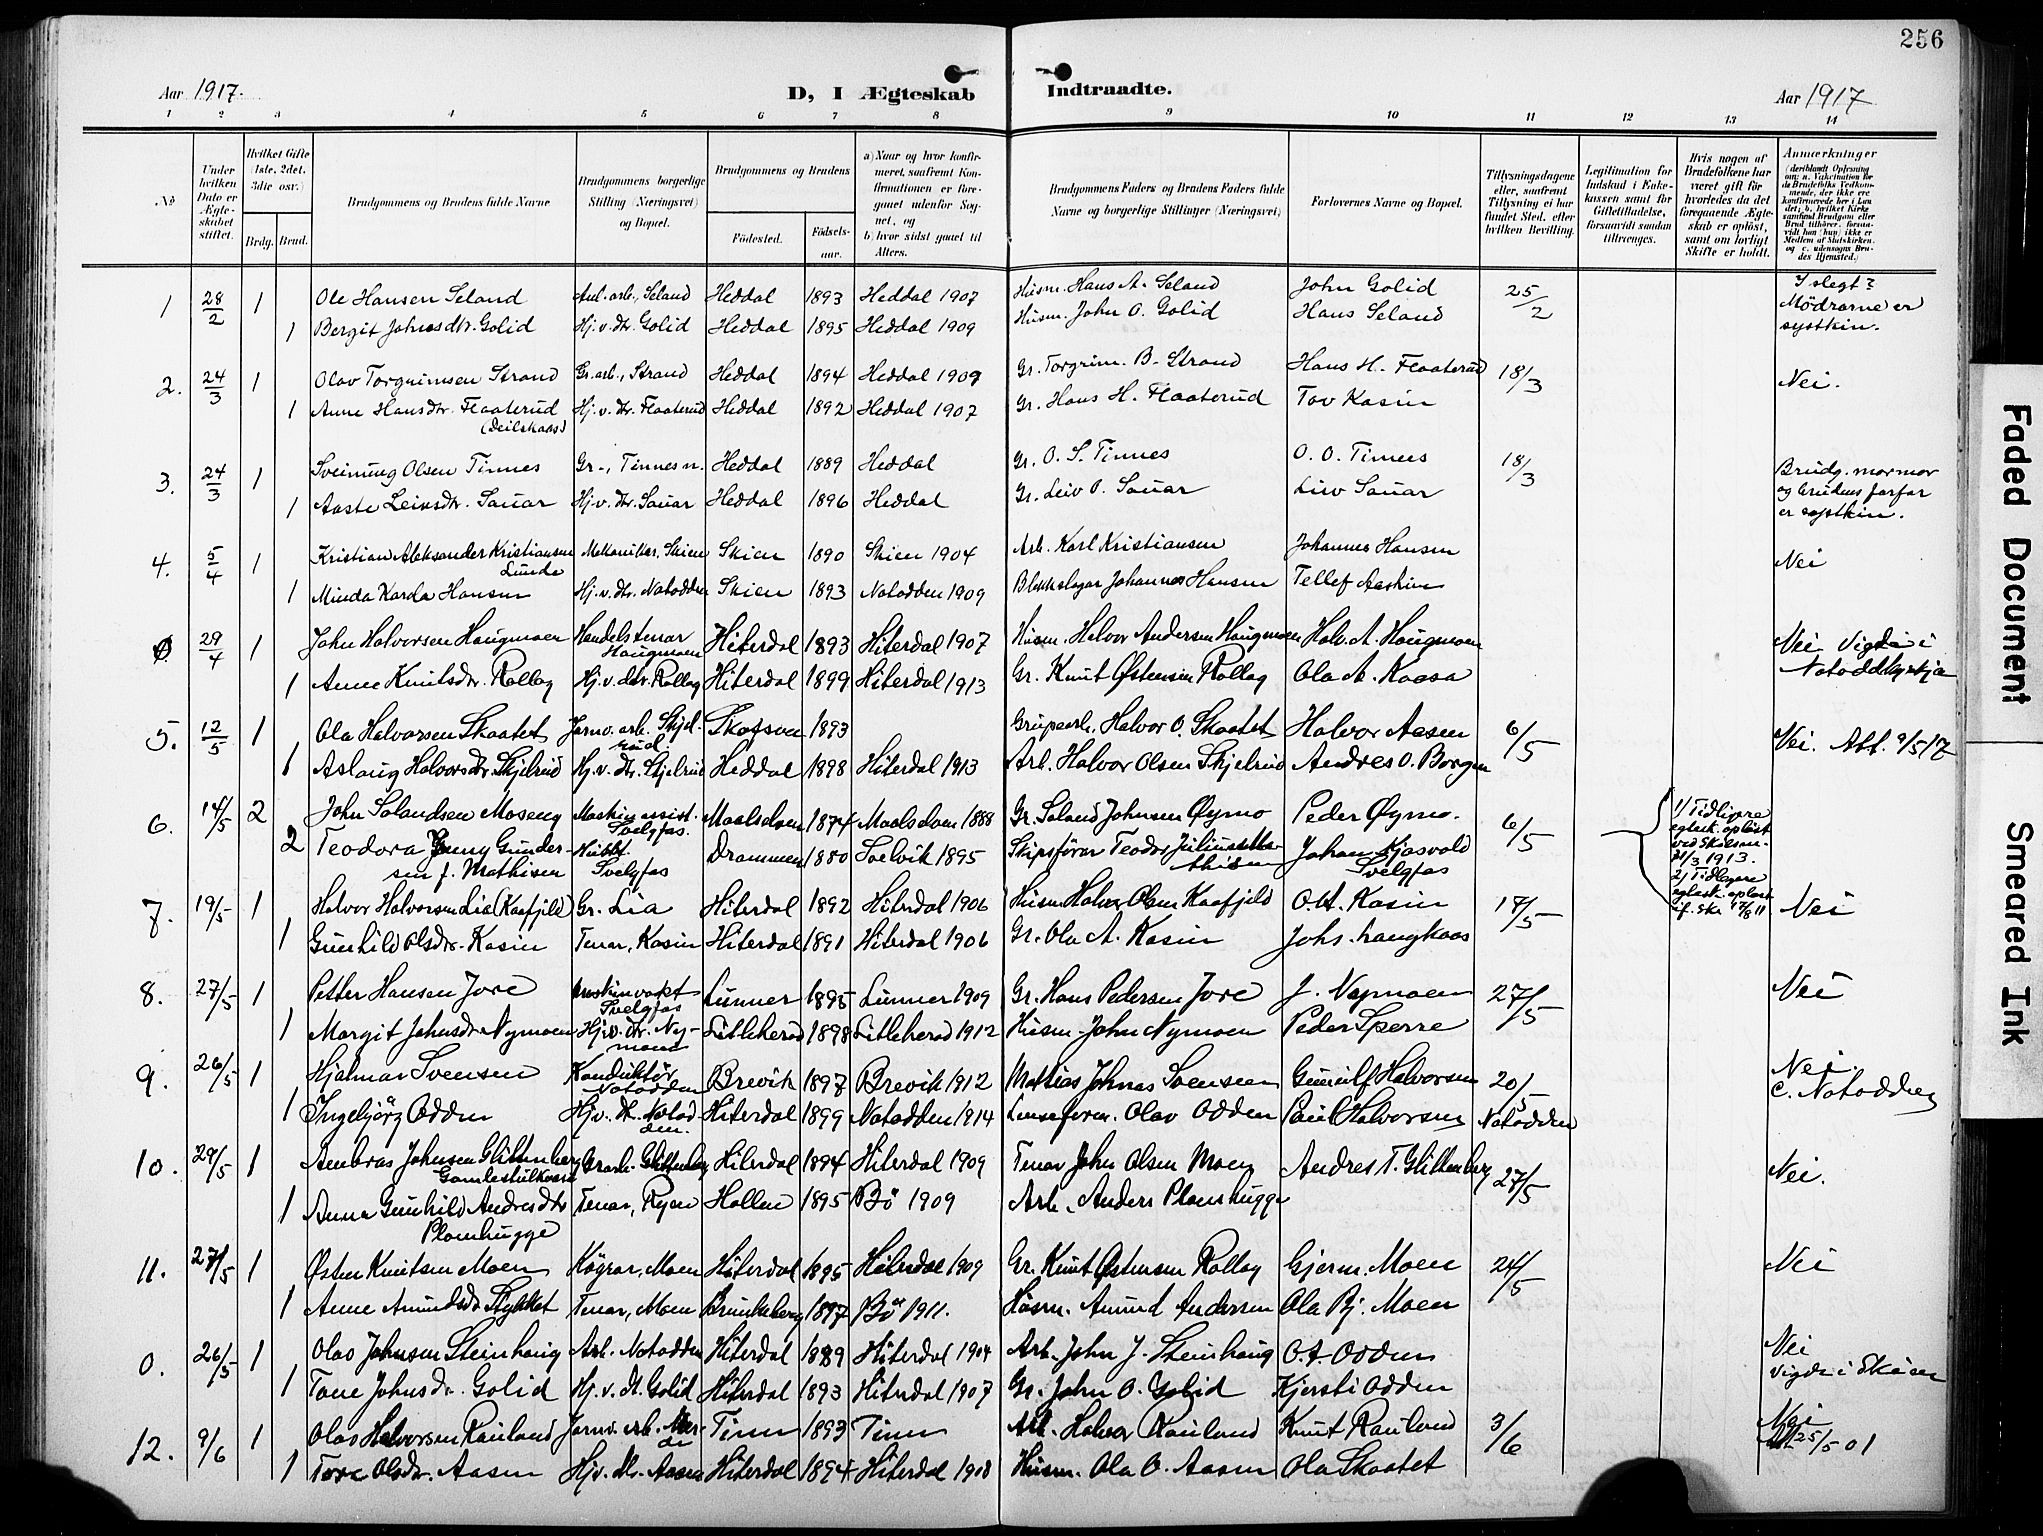 256
Aar 1917.
D, I Ægteskab Indtraadte.
Aar 1917
1 2 3 4 5 6 7 8 9 10 11 12 13 14
No
Under hvilken Dato er Ægteskabet stiftet.
Hvilket Gifte (1ste, 2det, 3die osv.)
Brdg. Brud.
Brudgommens og Brudens fulde Navne
Brudgommens borgerlige Stilling (Næringsvei) og Bopæl.
Brudgommens og Brudens
Fødested.
Fødselsaar.
a) Naar og hvor konfirmeret, saafremt Konfirmationen er foregaaet udenfor Sognet, og
b) hvor sidst gaaet til Alters.
Brudgommens Faders og Brudens Faders fulde Navne og borgerlige Stillinger (Næringsvei)
Forlovernes Navne og Bopæl.
Tillysningsdagene eller, saafremt Tillysning ei har fundet Sted, efter hvilken Bevilling.
Legitimation for Indskud i Enkekassen samt for Giftetilladelse, forsaavidt saadan tiltrænges.
Hvis nogen af Brudefolkene har været gift før hvorledes da det foregaaende Ægteskab er opløst, samt om lovligt Skifte er holdt.
Anmærkninger
1 28/2 1 Ole Hansen Seland Anl. arb., Seland Heddal 1893 Heddal 1907 Husm. Hans A. Seland John Golid 25/2 I slegt? Mödrarne er systkin.
1 Bergit Johnsdtr. Golid Hj. v. dtr. Golid Heddal 1895 Heddal 1909 Husm. John O. Golid Hans Seland
2. 24/3 1 Olav Torgrimsen Strand Gr. arb., Strand Heddal 1894 Heddal 1909 Gr. Torgrim B. Strand Hans H. Flaaterud 18/3 Nei.
1 Anne Hansdtr. Flaaterud Hj. v. dtr. Flaaterud Heddal 1892 Heddal 1907 Gr. Hans H. Flaaterud Tov Kasin
3. 24/3 1 Sveinung Olsen Tinnes Gr-, Tinnes n. Heddal 1889 Heddal Gr. O. S. Tinnes O. O. Tinnes 18/3 Brudg. mormor og brudens farfar er systkin.
1 Aaste Leivsdtr. Sauar Hj. v. dtr. Sauar Heddal 1896 Heddal Gr. Leiv O. Sauar Leiv Sauar
4. 5/4 1 Kristian Aleksander Kristiansen Lunde Mekaniker, Skien Skien 1890 Skien 1904 Arb. Karl Kristiansen Johannes Hansen Nei
1 Minda Karda Hansen Hj. v. dtr. Notodden Skien 1893 Notodden 1909 Blikkslagar Johannes Hansen Tellef Aaskin
0 29/4 1 John Halvorsen Haugmoen Handelstenar Haugmoen Hiterdal 1893 Hiterdal 1907 Husm. Halvor Andersen Haugmoen Halv. A. Haugmoen Nei Vigde i
1 Anne Knutsdtr. Rollag Hj. v. dtr. Rollag Hiterdal 1899 Hiterdal 1913 Gr. Knut Østensen Rollag Ola A. Kaasa
5. 12/5 1 Ola Halvorsen Skaatet Jarnv. arb. Skjelrud. 1893 Halvor O. Skaatet Halvor Aasen 6/5 Nei. Att. 9/5 17
1 Aslaug Halvorsdtr. Skjelrud Hj. v. dtr. Skjelrud Heddal 1898 Hiterdal 1913 Arb. Halvor Olsen Skjelrud Andres O. Borgen
6. 14/5 2 John Solandsen Moseng Svelgfos. Maalselven 1874 Maalselven 1888 Gr. Soland Johnsen Øymo Peder Øymo. 6/5 1/ Tidligere egtesk. opløst 1913.
2 Teodora Jenny Gundersen f. Mathisen Svelgfos Drammen 1880 Soelvik 1895 Skipsfører Teodor Johan Kjosvold Svelgfos 2/ Tidligere egtesk. opløst
7. 19/5 1 Halvor Halvorsen Lia (Kaafjeld) Gr. Lia Hiterdal 1892 Hiterdal 1906 Husm Halvor Olsen Kaafjeld O. A. Kasin 17/5 Nei
1 Gunhild Olsdtr. Kasin Tenar, Kasin Hiterdal 1891 Hiterdal 1906 Gr. Ola A. Kasin Johs. Langkaas
8. 27/5 1 Petter Hansen Jore Maskinvakt Svelgfos Lunner 1895 Lunner 1909 Gr. Hans Pedersen Jore J. Nymoen 27/5 Nei
1 Margit Johnsdtr Nymoen Hj. v. dtr. Nymoen Litleherad 1898 Litleherad 1912 Husm. John Nymoen Peder Sperre
9. 26/5 1 Hjalmar Svensen Konduktör Notodden Brevik 1897 Brevik 1912 Mathias Johnas Svensen Gunulf Halvorsen 20/5 Nei. c. Notodden
1 Ingebjörg Odden Hj. v. dt. Notodden. Hiterdal 1899 Notodden 1914 Olav Odden Paul Halvorsen Notodden
10. 29/5 1 Ambros Johnsen Glittenberg Gr.arb. Glittenberg Hiterdal 1894 Hiterdal 1909 Tenar John Olsen Moen Andres T. Glittenberg 27/5 Nei.
1 Anna Gunhild Andresdtr Plomhugge Tenar, Ryen Hollen 1895 Bö 1909 Arb. Anders Plomhugge
11. 27/5 1 Østen Knutsen Moen Kögrar, Moen Hiterdal 1895 Hiterdal 1909 Gr. Knut Østensen Rollag Gjerm. Moen 24/5 Nei
1 Anne Amundsdtr Stykket Tenar, Moen Brunkeberg 1897 Bö 1911. Husm. Amund Andersen Ola Bj. Moen
0. 26/5 1 Olav Johnsen Steinhaug Arb. Notodden Hiterdal 1889 Hiterdal 1904 Arb. John J. Steinhaug O. A. Odden Nei vigde i Skien
1 Tone Johnsdtr. Golid Hj. v. dt. Golid Hiterdal 1893 Hiterdal 1907 Gr. John O. Golid Kjersti Odden
12. 9/6 1 Olav Halvorsen Rauland Jarnv. arb. Tinn 1893 Tinn Arb. Halvor Rauland Knut Rauland 3/6 Nei 25/5 01
1 Tore Olsdtr. Aasen Hj. v. dt. Aasen Hiterdal 1894 Hiterdal 1908 Husm. Ola O. Aasen Ola Skaatet
Faded Document
Smeared Ink